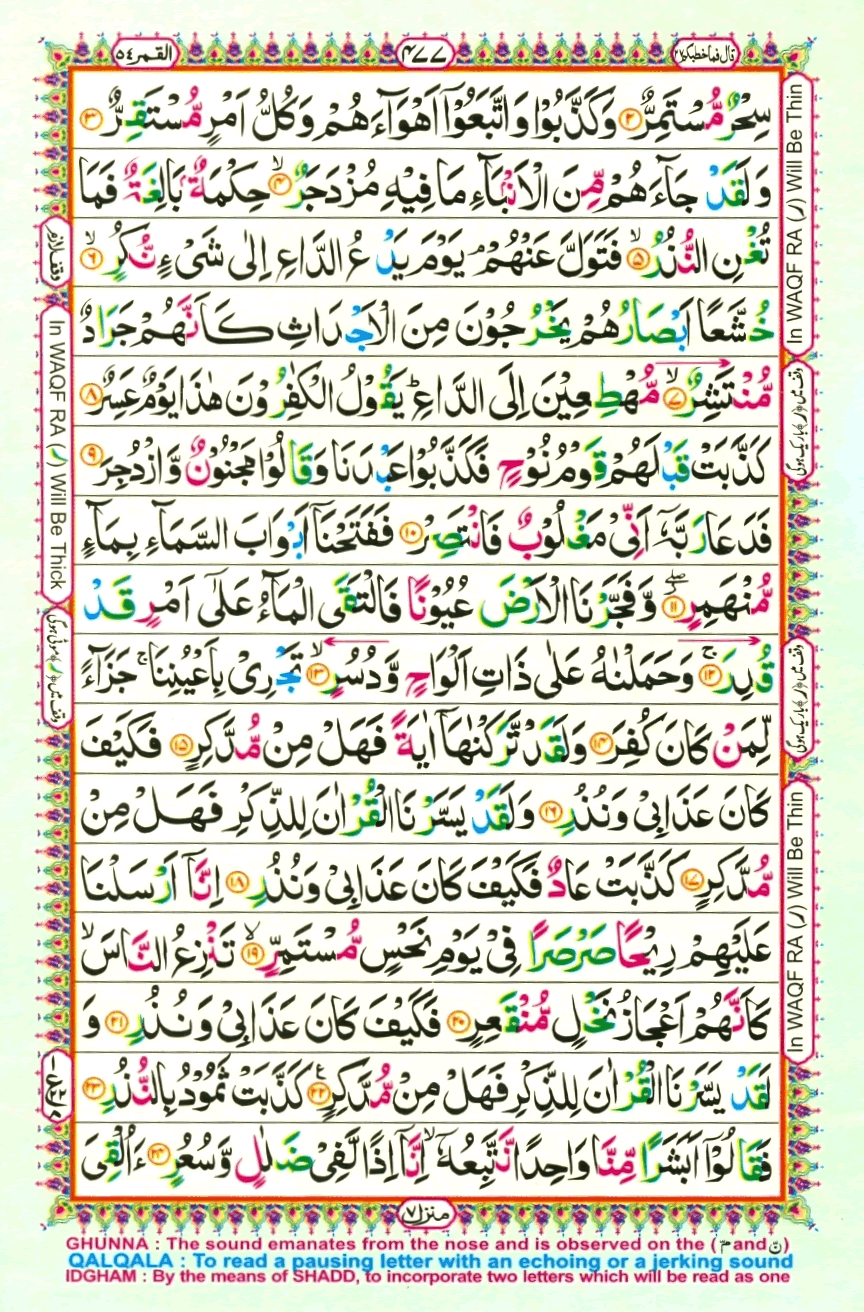 القمر ۵۴
۴۷۷
قال فما خطبكم ۲۷
سِحْرٌ مُّسْتَمِرٌّ ۲ وَكَذَّبُوْا وَاتَّبَعُوْۤا اَهْوَآءَهُمْ وَكُلُّ اَمْرٍ مُّسْتَقِرٌّ ۳
وَلَقَدْ جَآءَهُمْ مِّنَ الْاَنْۢبَآءِ مَا فِيْهِ مُزْدَجَرٌ ۴ۙ حِكْمَةٌۢ بَالِغَةٌ فَمَا
تُغْنِ النُّذُرُ ۵ۙ فَتَوَلَّ عَنْهُمْۘ يَوْمَ يَدْعُ الدَّاعِ اِلٰى شَىْءٍ نُّكُرٍ ۶ۙ
خُشَّعًا اَبْصَارُهُمْ يَخْرُجُوْنَ مِنَ الْاَجْدَاثِ كَاَنَّهُمْ جَرَادٌ
مُّنْتَشِرٌ ۷ۙ مُّهْطِعِيْنَ اِلَى الدَّاعِؕ يَقُوْلُ الْكٰفِرُوْنَ هٰذَا يَوْمٌ عَسِرٌ ۸
كَذَّبَتْ قَبْلَهُمْ قَوْمُ نُوْحٍ فَكَذَّبُوْا عَبْدَنَا وَقَالُوْا مَجْنُوْنٌ وَّازْدُجِرَ ۹
فَدَعَا رَبَّهٗۤ اَنِّىْ مَغْلُوْبٌ فَانْتَصِرْ ۱۰ فَفَتَحْنَاۤ اَبْوَابَ السَّمَآءِ بِمَآءٍ
مُّنْهَمِرٍ ۱۱ۖ وَّفَجَّرْنَا الْاَرْضَ عُيُوْنًا فَالْتَقَى الْمَآءُ عَلٰۤى اَمْرٍ قَدْ
قُدِرَ ۱۲ۚ وَحَمَلْنٰهُ عَلٰى ذَاتِ اَلْوَاحٍ وَّدُسُرٍ ۱۳ۙ تَجْرِىْ بِاَعْيُنِنَاۚ جَزَآءً
لِّمَنْ كَانَ كُفِرَ ۱۴ وَلَقَدْ تَّرَكْنٰهَاۤ اٰيَةً فَهَلْ مِنْ مُّدَّكِرٍ ۱۵ فَكَيْفَ
كَانَ عَذَابِىْ وَنُذُرِ ۱۶ وَلَقَدْ يَسَّرْنَا الْقُرْاٰنَ لِلذِّكْرِ فَهَلْ مِنْ
مُّدَّكِرٍ ۱۷ كَذَّبَتْ عَادٌ فَكَيْفَ كَانَ عَذَابِىْ وَنُذُرِ ۱۸ اِنَّاۤ اَرْسَلْنَا
عَلَيْهِمْ رِيْحًا صَرْصَرًا فِىْ يَوْمِ نَحْسٍ مُّسْتَمِرٍّ ۱۹ۙ تَنْزِعُ النَّاسَۙ
كَاَنَّهُمْ اَعْجَازُ نَخْلٍ مُّنْقَعِرٍ ۲۰ فَكَيْفَ كَانَ عَذَابِىْ وَنُذُرِ ۲۱ وَ
لَقَدْ يَسَّرْنَا الْقُرْاٰنَ لِلذِّكْرِ فَهَلْ مِنْ مُّدَّكِرٍ ۲۲ كَذَّبَتْ ثَمُوْدُ بِالنُّذُرِ ۲۳
فَقَالُوْۤا اَبَشَرًا مِّنَّا وَاحِدًا نَّتَّبِعُهٗۤۙ اِنَّاۤ اِذًا لَّفِىْ ضَلٰلٍ وَّسُعُرٍ ۲۴ ءَاُلْقِىَ
منزل ۷
In WAQF RA (ر) Will Be Thin
وقف میں (ر) باریک ہوگی
وقف میں (ر) باریک ہوگی
In WAQF RA (ر) Will Be Thin
وقف لازم
In WAQF RA (ر) Will Be Thick
وقف میں (ر) موٹی ہوگی
GHUNNA : The sound emanates from the nose and is observed on the (مّ and نّ)
QALQALA : To read a pausing letter with an echoing or a jerking sound
IDGHAM : By the means of SHADD, to incorporate two letters which will be read as one